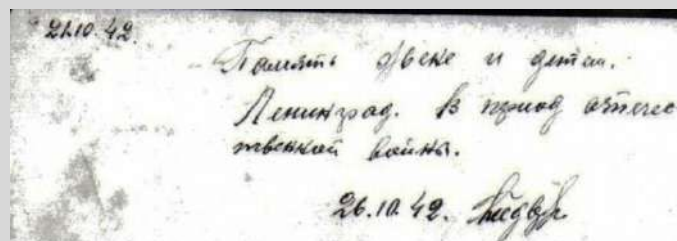 21.10.42.
Память Фвеке и детям.
Ленинград. В приод отечес
твенной войны.
26.10.42.